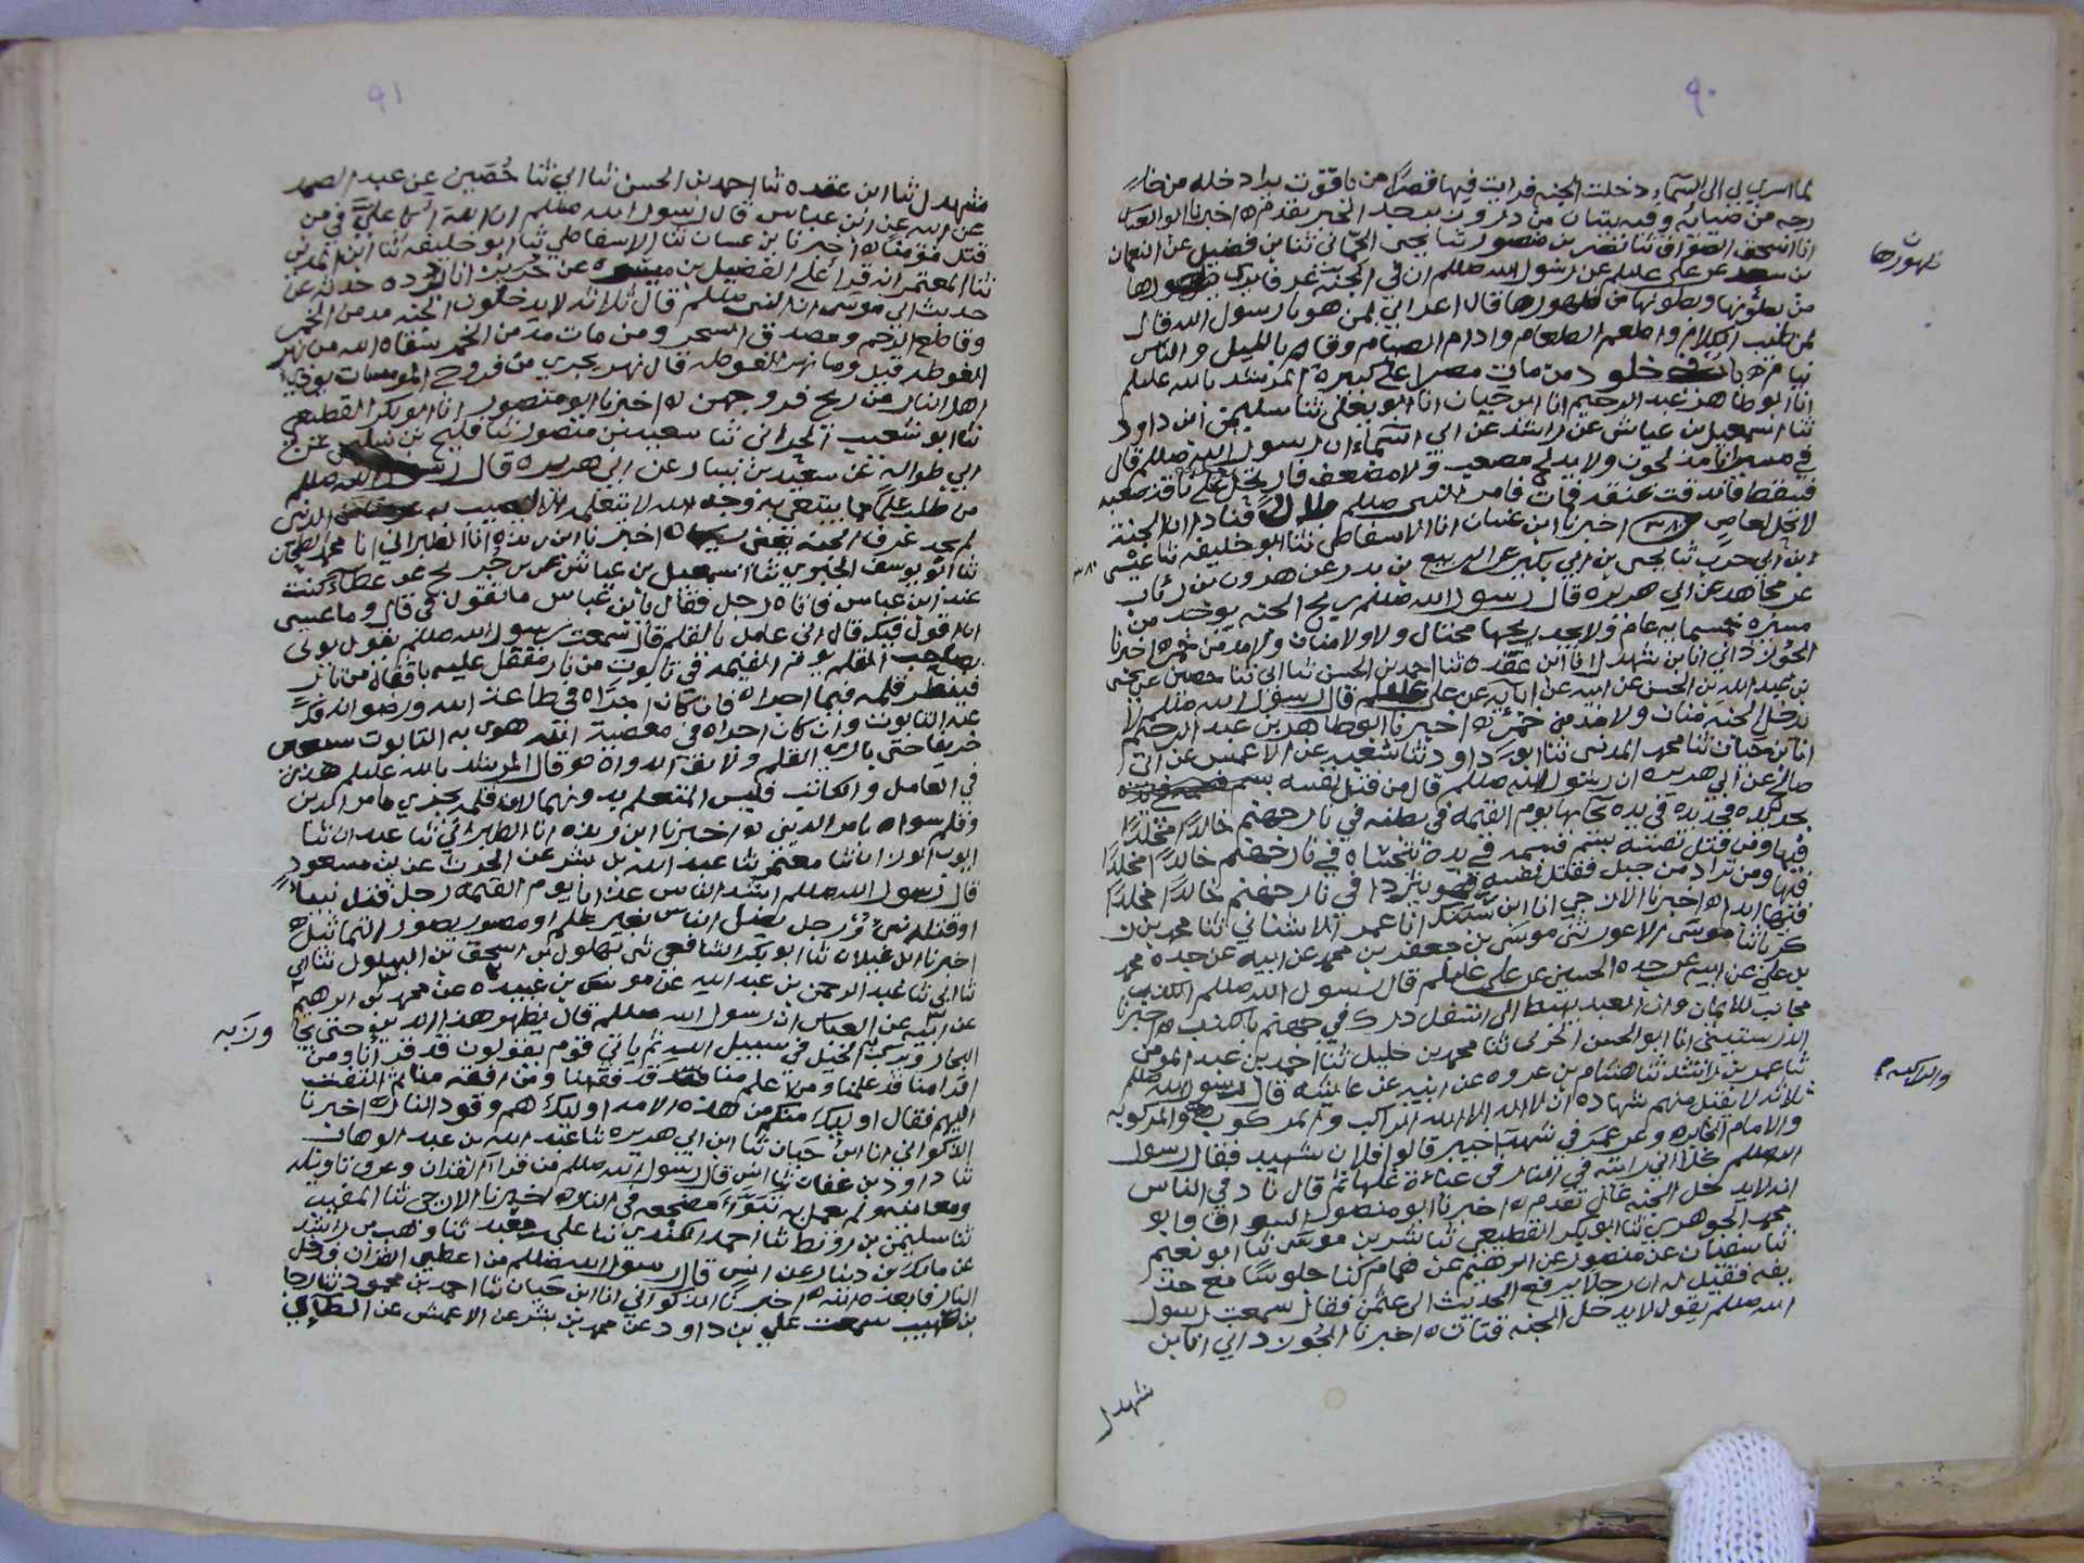 ٩٠
لما اسري بي الى السماء دخلت الجنه فرايت فيها قصرا من ياقوت يرا داخله من خارجه
من ضيائه وفيه بيتان من در و زبرجد الخبر بتقدم ه اخبرنا ابو العباس
انا اسحق ثنا نصر بن منصور ثنا يحيى الحماني ثنا بن فضيل عن النعمان
بن سعد عن علي عليلم عن رسول الله صللم ان في الجنه غرفا يرى ظهورها
من بطونها وبطونها من ظهورها قال اعرابي لمن هو يا رسول الله قال
لمن طيب الكلام واطعم الطعام وادام الصيام وقام بالليل والناس
نيام ه باب في خلود من مات مصرا على كبيرة المرشد بالله عليلم
انا ابو طاهر عبد الرحيم انا ابن حيان انا ابو يعلى ثنا سليمن بن داود
ثنا اسمعيل بن عياش عن راشد عن ابي اسماء ان رسول الله صللم قال
في مسير انا مدلجون ولا يدلج مصعب ولا مضعف فارتحل على ناقه صعبه
فسقط فاندقت عنقه فمات فامر النبي صللم بلالا فنادا ان الجنة
لا تحل لعاص اخبرنا ابن غسان انا الاسفاطي ثنا ابو خليفه ثنا
ابن ابي حرب ثنا يحيى بن ابي بكير عن الربيع بن بدر عن هرون بن رئاب
عن مجاهد عن ابي هريره قال رسول الله صللم ريح الجنه يوخذ من
مسيره خمسمايه عام ولا يجد ريحها مختال ولا منان ولا مدمن خمر ه اخبرنا
الجوزداني انا بن شهدل انا ابن عقده ثنا احمد بن الحسن ثنا ابي ثنا حصين عن يحيى
بن عبد الله بن الحسن عن ابيه عن ابايه عن علي عليلم قال رسول الله صللم لا
يدخل الجنه منان ولا مدمن خمر ه اخبرنا ابو طاهر بن عبد الرحيم
انا بن حيان ثنا محمد المدني ثنا ابو داود ثنا شعبه عن الاعمش عن ابي
صالح عن ابي هريره ان رسول الله صللم قال من قتل نفسه
بحديده فحديده في يده يجابها يوم القيمه في بطنه في نار جهنم خالدا مخلدا
فيها ومن قتل نفسه بسم فسمه في يده يتحساه في نار جهنم خالدا مخلدا
فيها ومن تردا من جبل فقتل نفسه فهو يتردا في نار جهنم خالدا مخلدا
فيها ابدا ه اخبرنا الازجي انا ابن سنبك انا عمر الاشناني ثنا محمد بن
زكريا ثنا موسى الاعور ثني موسى بن جعفر بن محمد عن ابيه عن جده محمد
بن علي عن ابيه عن جده الحسين عن علي عليلم قال رسول الله صللم الكذب
مجانب للايمان وان العبد يهبط الى اسفل درك في جهنم بالكذب ه اخبرنا
انا ابو الحسن ثنا محمد بن خليل ثنا احمد بن عبد المومن
ثنا عمر بن راشد ثنا هشام بن عروه عن ابيه عن عايشه قال رسول الله صللم
ثلاثه لا يقبل منهم شهاده ان لا اله الا الله الراكب والمركوب والمركوبه
والامام الجايره وعن عمر في شهدا خيبر قالوا فلان شهيد فقال رسول
الله صللم كلا اني رايته في النار في عباءة غلها ثم قال ناد في الناس
انه لا يدخل الجنه غال تقدم ه اخبرنا ابو منصور السواق وابو
محمد الجوهري ثنا ابو بكر القطيعي ثنا بشر بن موسى ثنا ابو نعيم
ثنا سفيان عن منصور عن ابرهيم عن همام كنا جلوسا مع حذيفه
فقيل له ان رجلا يرفع الحديث الى عثمن فقال سمعت رسول
الله صللم يقول لا يدخل الجنه قتات ه اخبرنا الجوزداني انا بن
شهدل
ظهورها
والراكبه
٩١
شهدل ثنا ابن عقده ثنا احمد بن الحسن ثنا ابي ثنا حصين عن عبد الصمد
عن ابيه عن ابن عباس قال رسول الله صللم ان الله ابى علي في من
قتل مؤمنا ه اخبرنا بن غسان ثنا الاسفاطي ثنا ابو خليفه ثنا ابن المديني
ثنا المعتمر انه قرا على الفضيل بن ميسره عن حريز ان ابا برده حدثه عن
حديث ابي موسى ان النبي صللم قال ثلاثه لا يدخلون الجنه مدمن الخمر
وقاطع الرحم ومصدق السحر ومن مات مدمن الخمر سقاه الله من نهر
الغوطه قيل وما نهر الغوطه قال نهر يجري من فروج المومسات يوذي
اهل النار من ريح فروجهن ه اخبرنا ابو منصور انا ابو بكر القطيعي
ثنا ابو شعيب الحراني ثنا سعيد بن منصور ثنا فليح بن سليمن عن
ابي طواله عن سعيد بن يسار عن ابي هريره قال رسول الله صللم
من طلب علما مما يبتغى به وجه الله لا يتعلمه الا ليصيب به الدنيا
لم يجد عرف الجنه ه اخبرنا ابن ريذه انا الطبراني انا محمد
ثنا ابو يوسف ثنا اسمعيل بن عياش عن عطاء كنت
عند ابن عباس فاتاه رجل فقال يا بن عباس ما تقول في قال وما عسى
ان اقول فيك قال اني عامل بالقلم قال سمعت رسول الله صللم يقول يوتى
بصاحب القلم يوم القيمه في تابوت من نار مقفل عليه باقفال من نار
فينظر قلمه فيما اجراه فان كان اجراه في طاعة الله ورضوانه فك
عنه التابوت وان كان اجراه في معصية الله هوى به التابوت سبعين
خريفا حتى باري القلم ولايق الدواه ه وقال المرشد بالله عليلم هذين
في العامل والكاتب فليس المتعلم به
وقلم سواه بامر الدين ه اخبرنا ابن ريذه انا الطبراني ثنا عبدان ثنا
ايوب ثنا معتمر ثنا عبد الله بن بشر عن الحرث عن بن مسعود
قال رسول الله صللم اشد الناس عذابا يوم القيمه رجل قتل نبيا
او قتله نبي ورجل يضل الناس بغير علم او مصور يصور التماثيل ه
اخبرنا ابن غيلان ثنا ابو بكر الشافعي ثنى بهلول بن اسحق بن البهلول ثنا ابي
ثنا ابي ثنا عبد الرحمن بن عبد الله عن موسى بن عبيده عن محمد بن ابرهيم
عن العباس ان رسول الله صللم قال يظهر هذا الدين حتى يجاوز
البحار وتركب الخيل في سبيل الله ثم ياتي قوم يقولون قد قرانا ومن
اقرا منا قد علمنا ومن اعلم منا قد فقهنا ومن افقه منا ثم التفت
اليهم فقال اوليك منكم من هذه الامه اوليك هم وقود النار ه اخبرنا
الذكواني انا ابن حيان ثنا ابن ابي هريره ثنا عبد الله بن عبد الوهاب
ثنا داود بن عفان ثنا انس قال رسول الله صللم من قرا القران وعرف تاويله
ومعانيه ولم يعمل به تبوأ مضجعه في النار ه اخبرنا الازجي ثنا المفيد
ثنا سليمن بن ثنا احمد الكندي ثنا علي بن معبد ثنا وهب بن راشد
عن مالك بن دينار عن انس قال رسول الله صللم من اعطي القران فدخل
النار فابعده الله ه اخبرنا الذكواني انا ابن حيان ثنا احمد بن محمود ثنا رجا
بن صهيب سمعت علي بن داود عن محمد بن بشر عن الاعمش عن